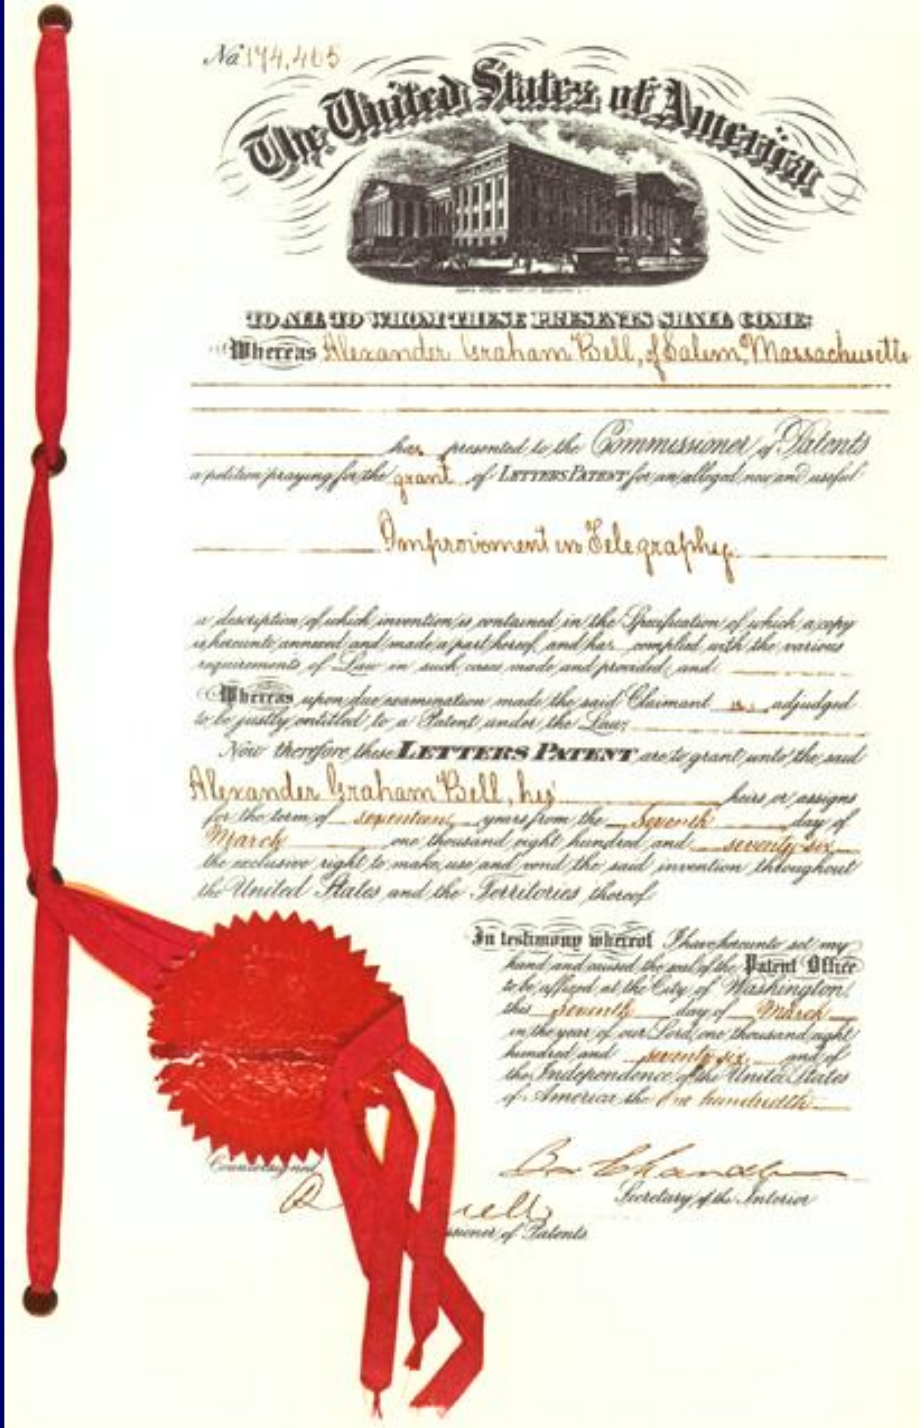 No 174,465
The United States of America
TO ALL TO WHOM THESE PRESENTS SHALL COME:
Whereas Alexander Graham Bell, of Salem, Massachusetts
has presented to the Commissioner of Patents
a petition praying for the grant of LETTERS PATENT for an alleged new and useful
Improvement in Telegraphy.
a description of which invention is contained in the Specification of which a copy
is hereunto annexed and made a part hereof, and has complied with the various
requirements of Law in such cases made and provided, and
Whereas upon due examination made the said Claimant is adjudged
to be justly entitled to a Patent under the Law;
Now therefore these LETTERS PATENT are to grant unto the said
Alexander Graham Bell, his heirs or assigns
for the term of seventeen years from the Seventh day of
March one thousand eight hundred and seventy-six
the exclusive right to make, use and vend the said invention throughout
the United States and the Territories thereof
In testimony whereof I have hereunto set my
hand and caused the seal of the Patent Office
to be affixed at the City of Washington
this seventh day of March
in the year of our Lord one thousand eight
hundred and seventy six and of
the Independence of the United States
of America the one hundredth.
Countersigned
Secretary of the Interior
of Patents